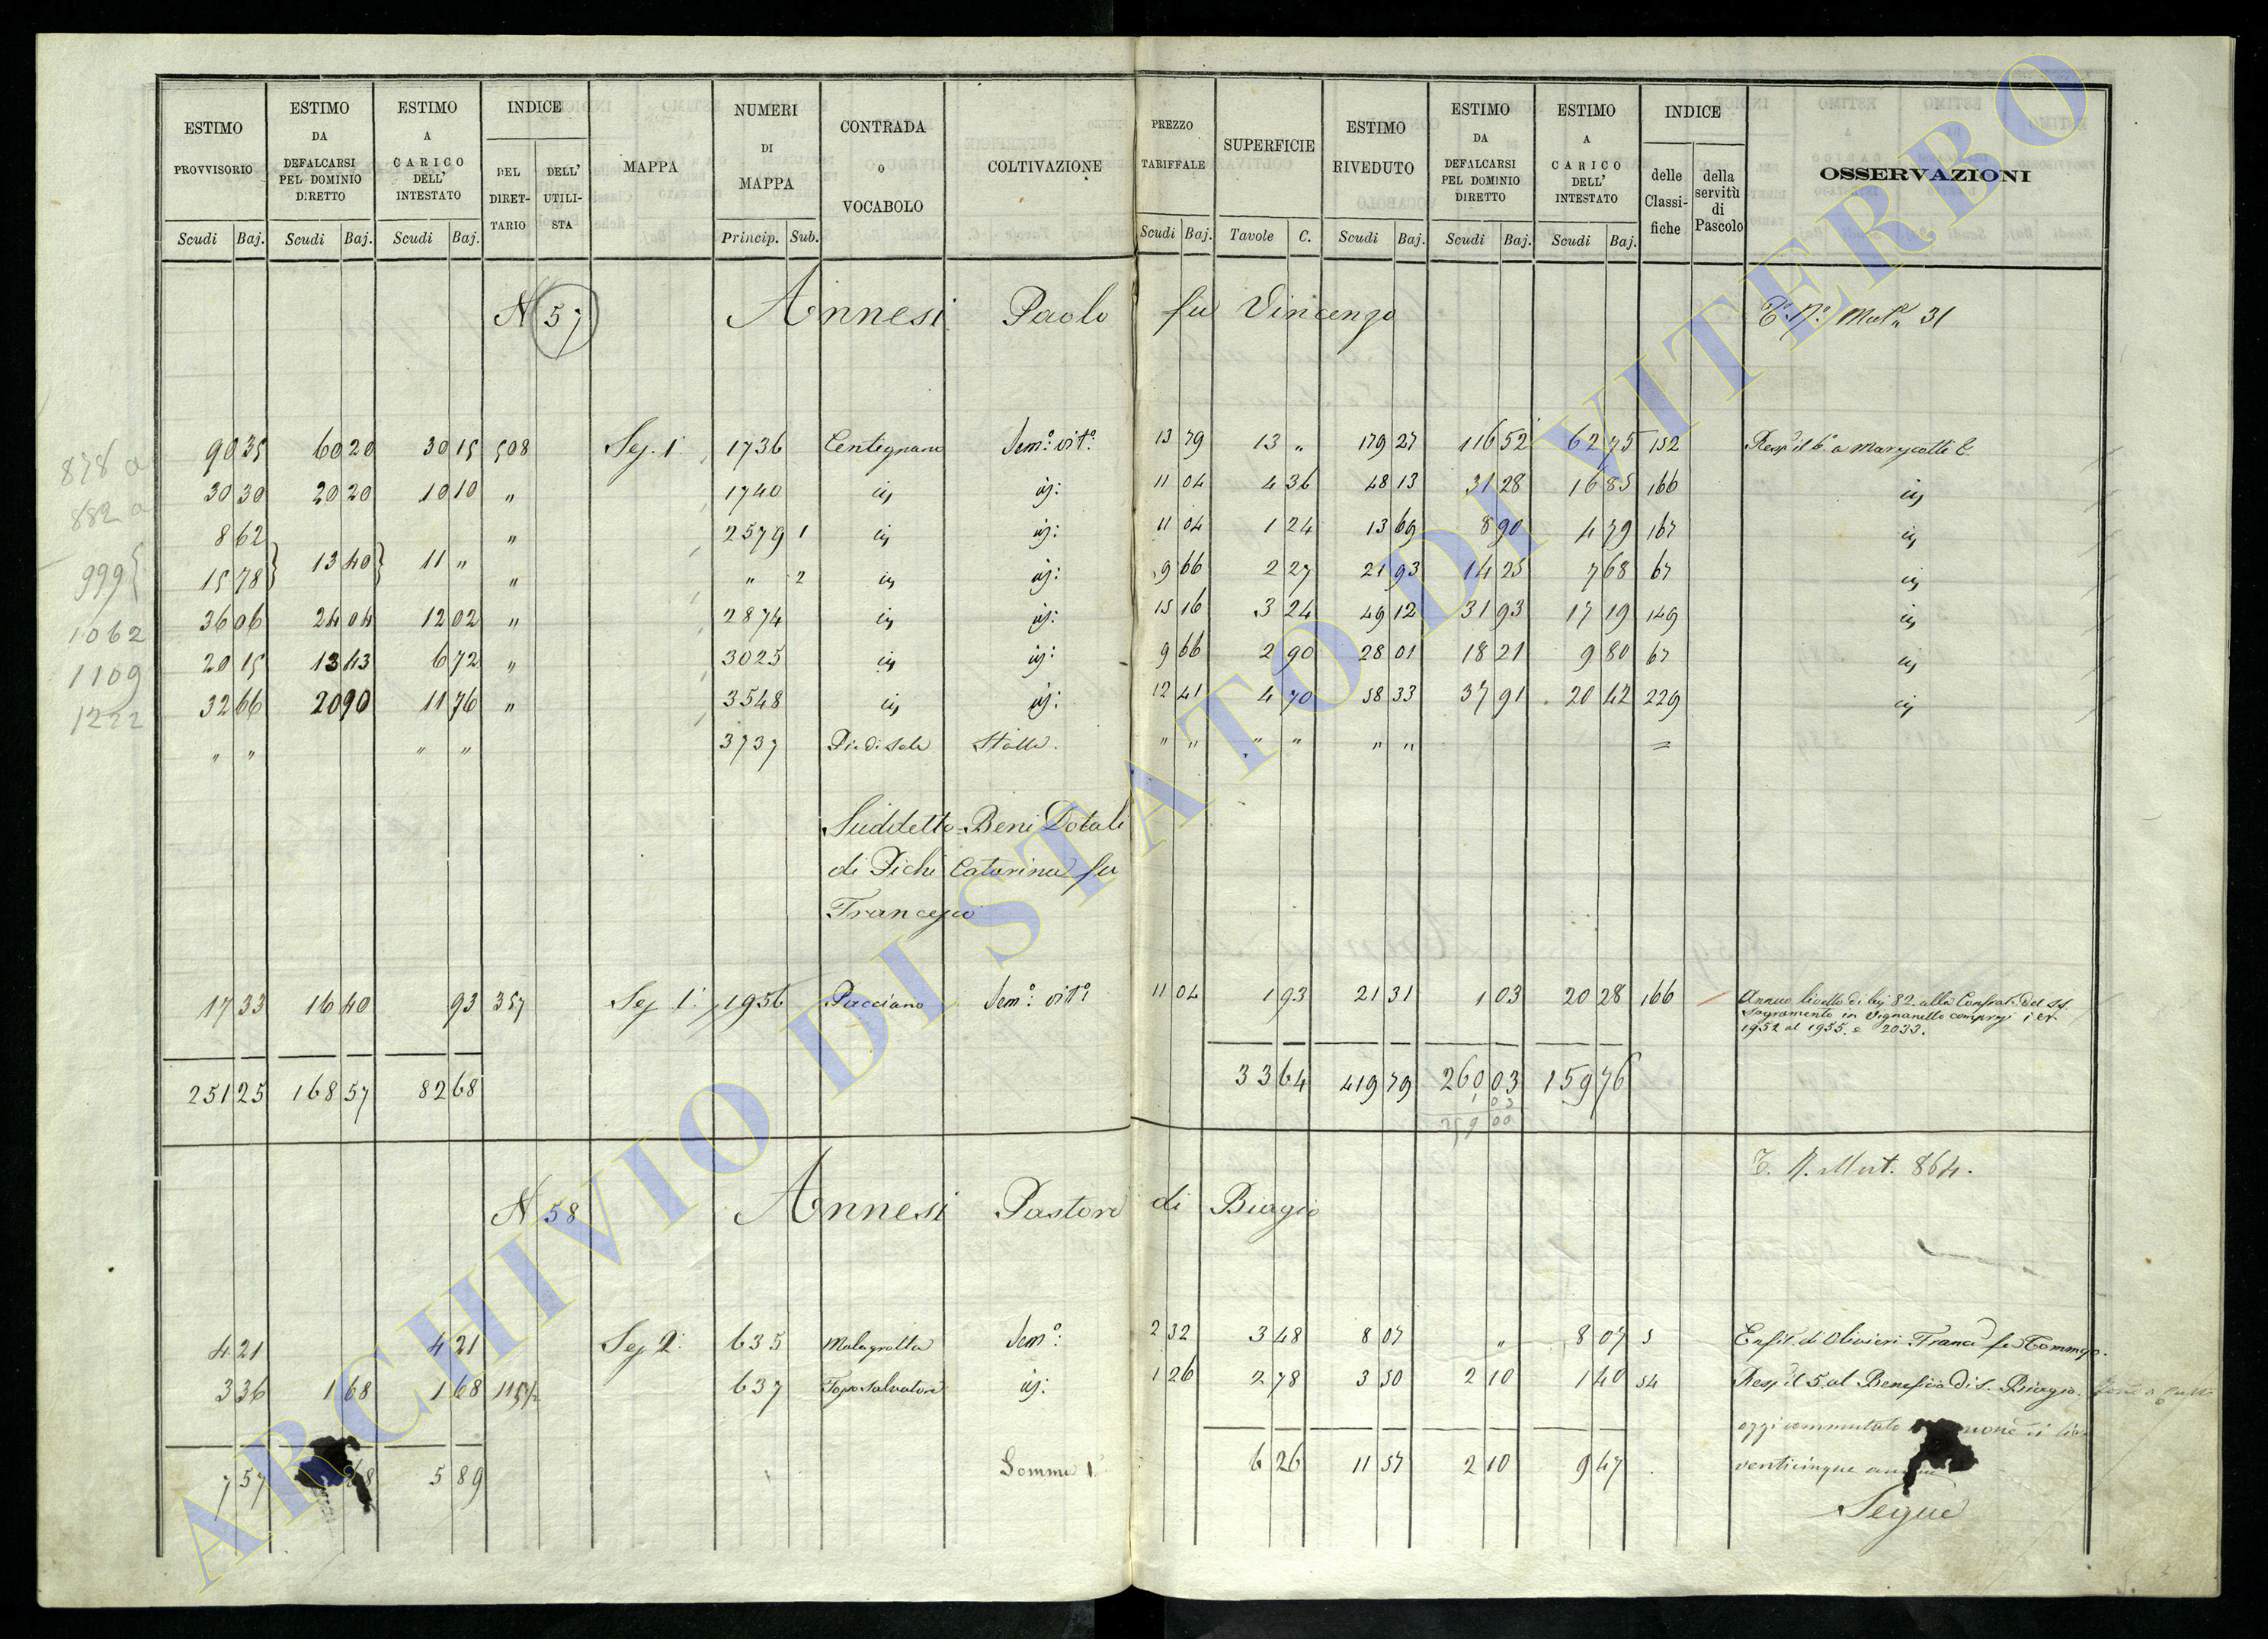 ESTIMO PROVVISORIO
ESTIMO DA DEFALCARSI PEL DOMINIO DIRETTO
ESTIMO A CARICO DELL' INTESTATO
INDICE
DEL DIRETTARIO
DELL' UTILISTA
MAPPA
NUMERI DI MAPPA
CONTRADA o VOCABOLO
COLTIVAZIONE
PREZZO TARIFFALE
SUPERFICIE
ESTIMO RIVEDUTO
ESTIMO DA DEFALCARSI PEL DOMINIO DIRETTO
ESTIMO A CARICO DELL' INTESTATO
INDICE
delle Classifiche
della servitù di Pascolo
OSSERVAZIONI
Scudi Baj. Scudi Baj. Scudi Baj. Princip. Sub. Scudi Baj. Tavole C. Scudi Baj. Scudi Baj. Scudi Baj.
N 57 Annesi Paolo fu Vincenzo 31
878 a 90 35 60 20 30 15 508 Sez. 1ª 1736 Centignano Sem.º vit.º 13 79 13 " 179 27 116 52 62 75 152
882 a 30 30 20 20 10 10 " 1740 11 04 4 36 48 13 31 28 16 85 166
999 { 8 62 } 13 40 } 11 " " 2579 1 11 04 1 24 13 69 8 90 4 79 167
15 78 " " 2 9 66 2 27 21 93 14 25 7 68 67
1062 36 06 24 04 12 02 " 2874 15 16 3 24 49 12 31 93 17 19 149
1109 20 15 13 43 6 72 " 3025 9 66 2 90 28 01 18 21 9 80 67
1222 32 66 20 90 11 76 " 3548 12 41 4 70 58 33 37 91 20 42 229
" " " " 3737 Pie di Sala Stalla. " " " " " "
Suddetto Beni Dotali
di Pichi Catarina fu
Francesco
17 33 16 40 93 357 Sez. 1ª 1956 Pacciano Sem.º vit.º 11 04 1 93 21 31 1 03 20 28 166 Annuo livello di bj 82 alla Confrat. del SS.
Sagramento in Vignanello compresi i
1952 al 1955. e 2033.
251 25 168 57 82 68 33 64 419 79 260 03 159 76
1 03
259 00
T. N. Mut. 864.
N 58 Annesi Pastore di Biagio
4 21 4 21 Sez. 2ª 635 Malagrotta Sem.º 2 32 3 48 8 07 " 8 07 5 Enfit. di Olivieri
3 36 1 68 1 68 637 Fosso Salvatore 1 26 2 78 3 50 2 10 1 40 54 Resp. il 5 al Beneficio di S. Biagio.
oggi commutato
7 57 68 5 89 Somma 6 26 11 57 2 10 9 47 venticinque
Segue
ARCHIVIO DI STATO DI VITERBO